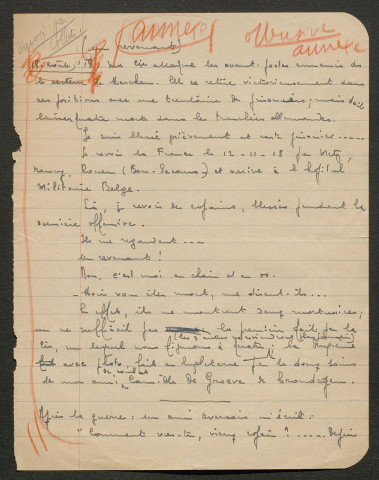 annexe
offensive
annexe
(un revenant)
18, ma Cie attaque les avant-postes ennemis de
le secteur de Merckem. Elle se retire victorieusement dans
ses positions avec une trentaine de prisonniers; mais
morts dans les tranchées allemandes.
Je suis blessé grièvement et reste prisonnier.....
Je revois la France le 12-11-18 par Metz,
Nancy, Rouen (Bon-Secours) et arrive à l'hôpital
Militaire Belge.
Là, je revois de copains, blessés pendant la
dernière offensive.
Ils me regardent....
un revenant!
Non, c'est moi en chair et en os.
- Mais vous êtes mort, me disent-ils...
En effet, ils me montrent deux mortuaires,
un ne suffisait pas les premiers fait par la
Cie, un lequel nous figurons à quatre, la deuxième
avec photo, fait en Angleterre par les doux soins
de mon ami Camille De Graeve de
Après la guerre: un ami m'écrit:
"Comment vas-tu, vieux copain? ..... Depuis